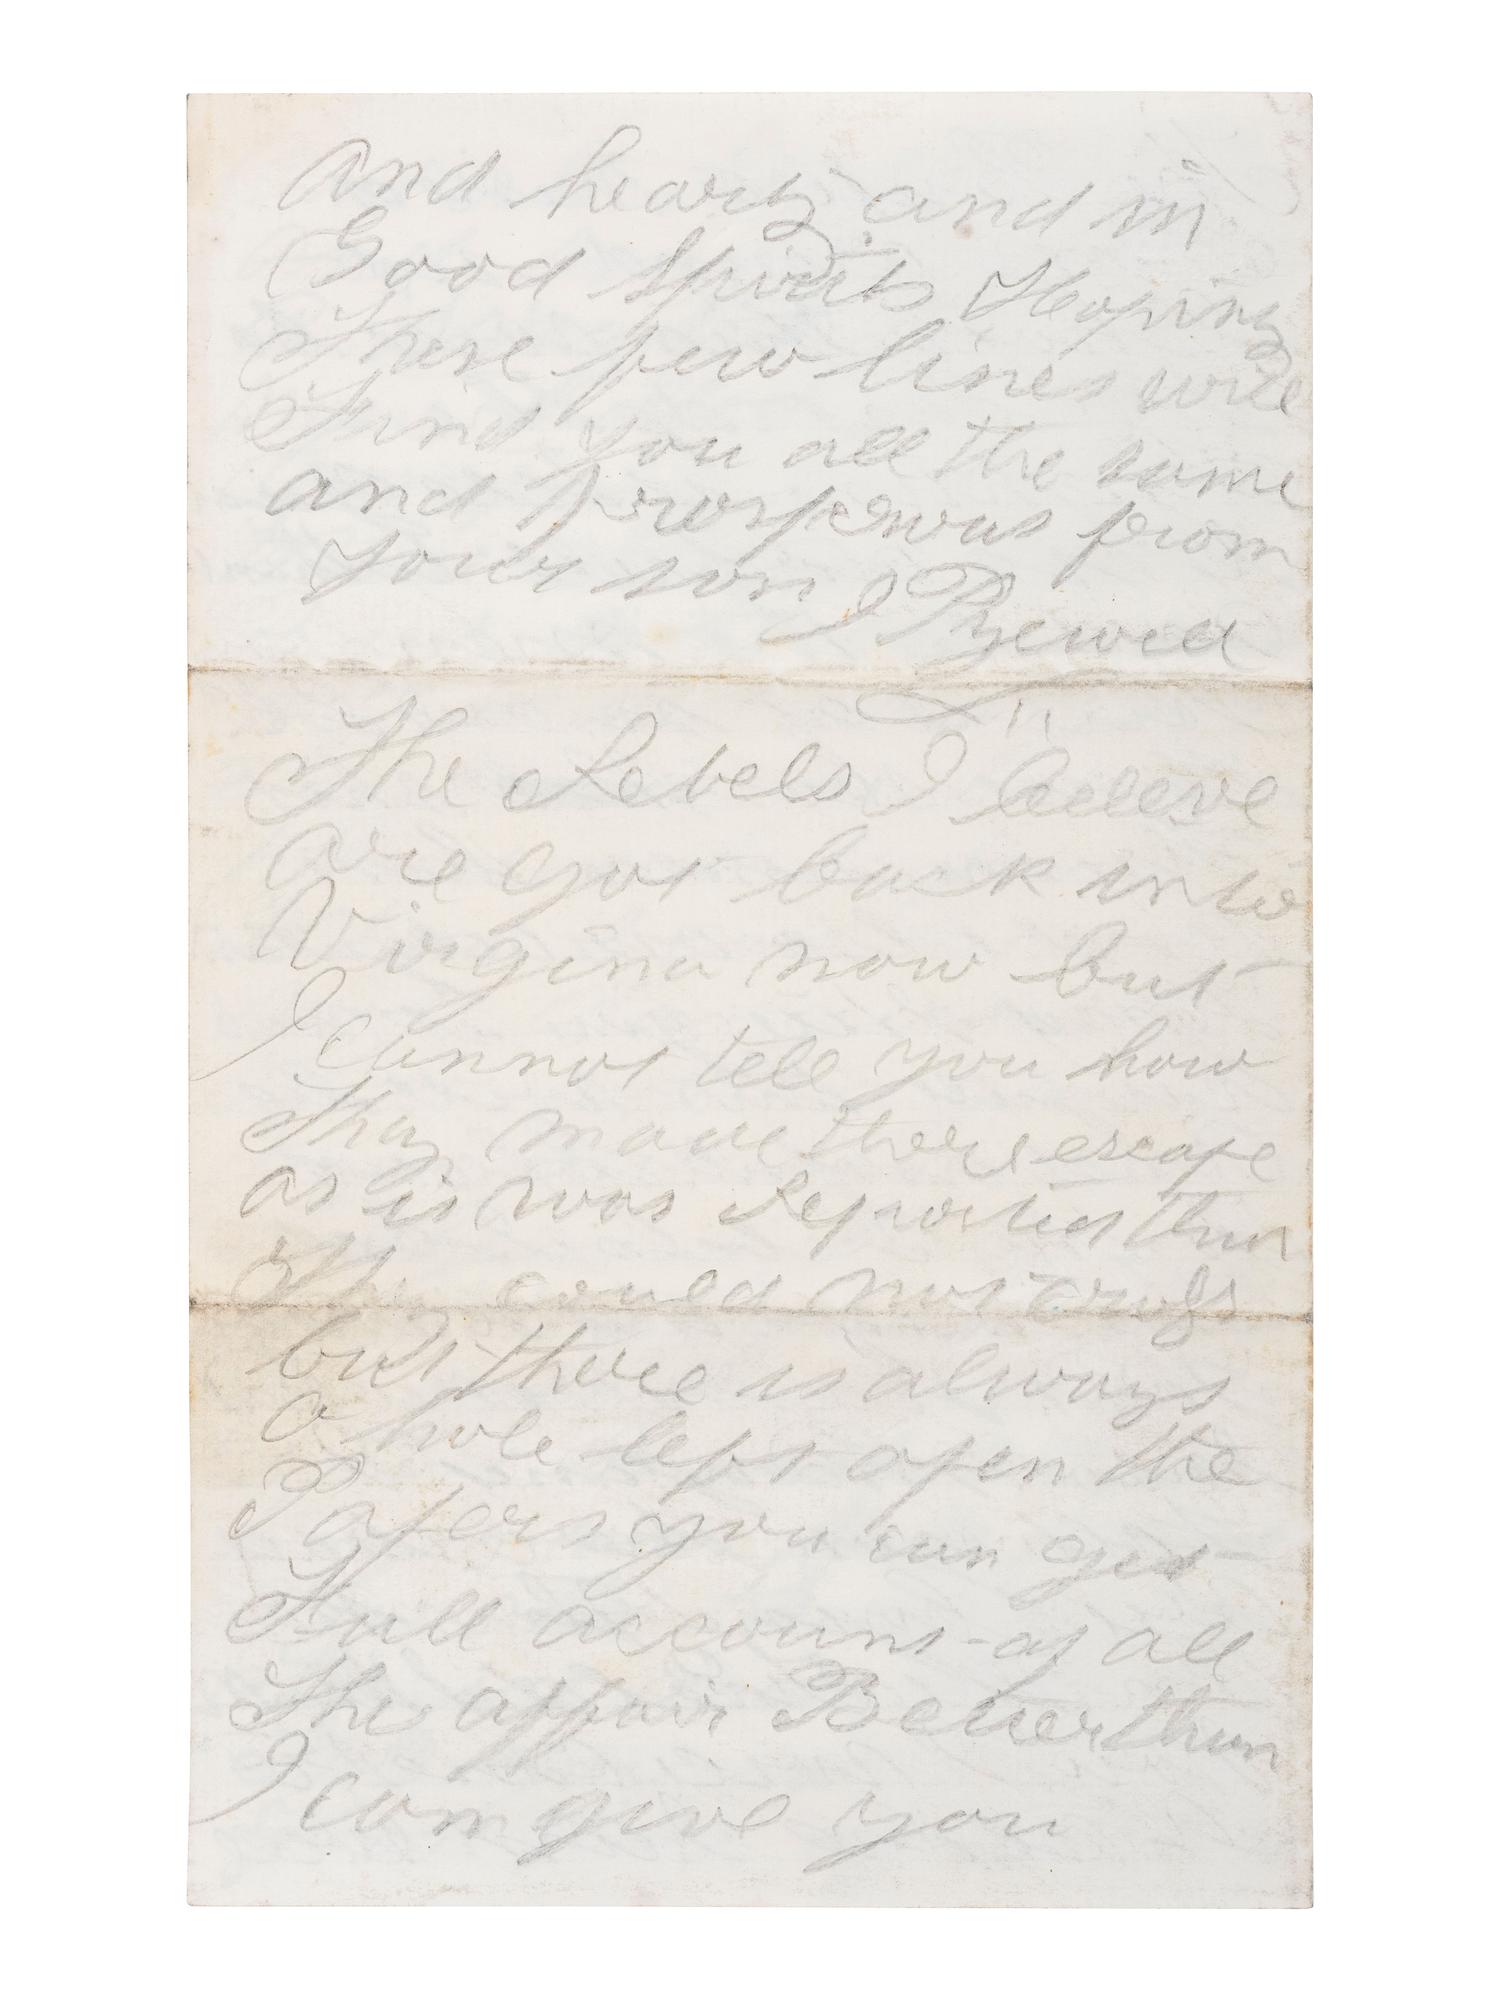 and hearty and in
Good spirits Hoping
These few lines will
Find you all the same
and Prosperous from
your son J
The Rebels I beleive
are got back into
Virgina now but
I cannot tell you how
They made there escape
as it was Reported that
They could not cross
but there is always
a hole left open the
Papers you can get
Full account of all
The affair Better than
I can give you